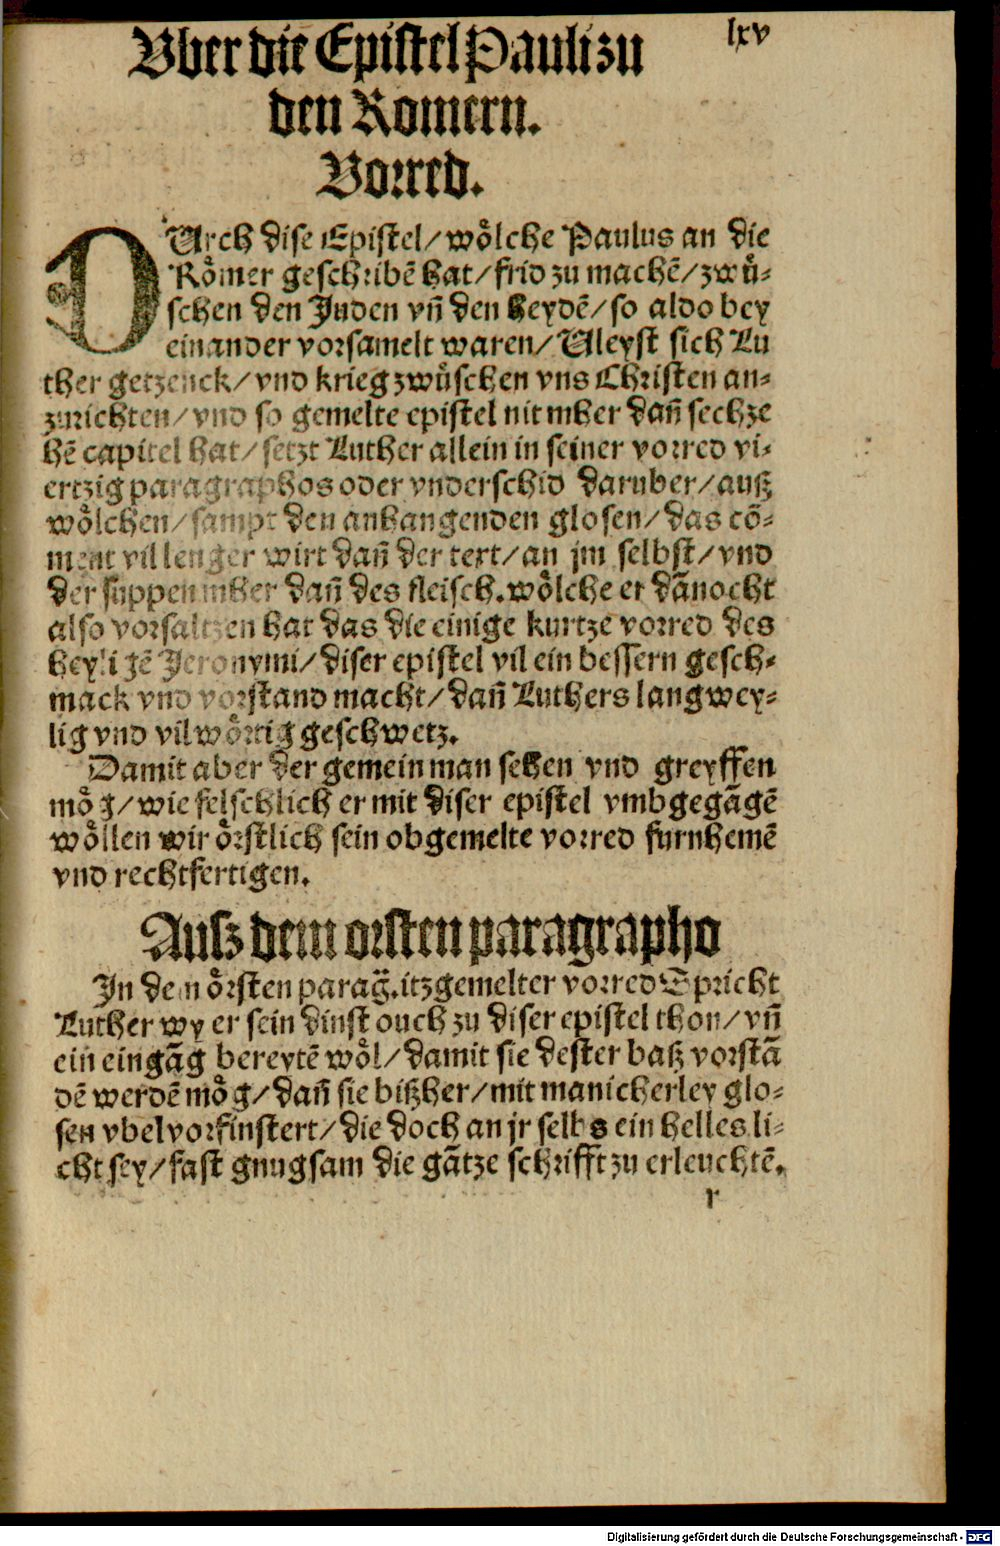 lxv
Vber die Epistel Pauli zu
den Romern.
Vorred.
DUrch dise Epistel/ wölche Paulus an die
Römer geschribẽ hat/ frid zu machẽ/ zwů-
schen den Juden vñ den heydẽ/ so aldo bey
einander vorsamelt waren/ Vleyst sich Lu
ther getzenck/ vnd krieg zwůschen vns Christen an-
zurichten/ vnd so gemelte epistel nit mher dañ sechze
hẽ capitel hat/ setzt Luther allein in seiner vorred vi-
ertzig paragraphos oder vnderschid daruber/ auß
wölchen/ sampt den anhangenden glosen/ das cõ-
ment vil lenger wirt dañ der text/ an jm selbst/ vnd
der suppen mher dañ des fleisch. wölche er dãnocht
also vorsaltzen hat das die einige kurtze vorred des
heyligẽ Jeronymi/ diser epistel vil ein bessern gesch-
mack vnd vorstand macht/ dañ Luthers langwey-
lig vnd vilwörtig geschwetz.
Damit aber der gemein man sehen vnd greyffen
mög/ wie felschlich er mit diser epistel vmbgegãgẽ
wöllen wir örstlich sein obgemelte vorred furnhemẽ
vnd rechtfertigen.
Ausz dem orsten paragrapho
In dem örsten parag̃. itzgemelter vorred Spricht
Luther wy er sein dinst ouch zu diser epistel thon/ vñ
ein eingãg bereytẽ wöl/ damit sie dester baß vorstã
dẽ werdẽ mög/ dañ sie bißher/ mit manicherley glo-
sen vbel vorfinstert/ die doch an jr selbs ein helles li-
cht sey/ fast gnugsam die gãtze schrifft zu erleuchtẽ.
r
Digitalisierung gefördert durch die Deutsche Forschungsgemeinschaft - DFG